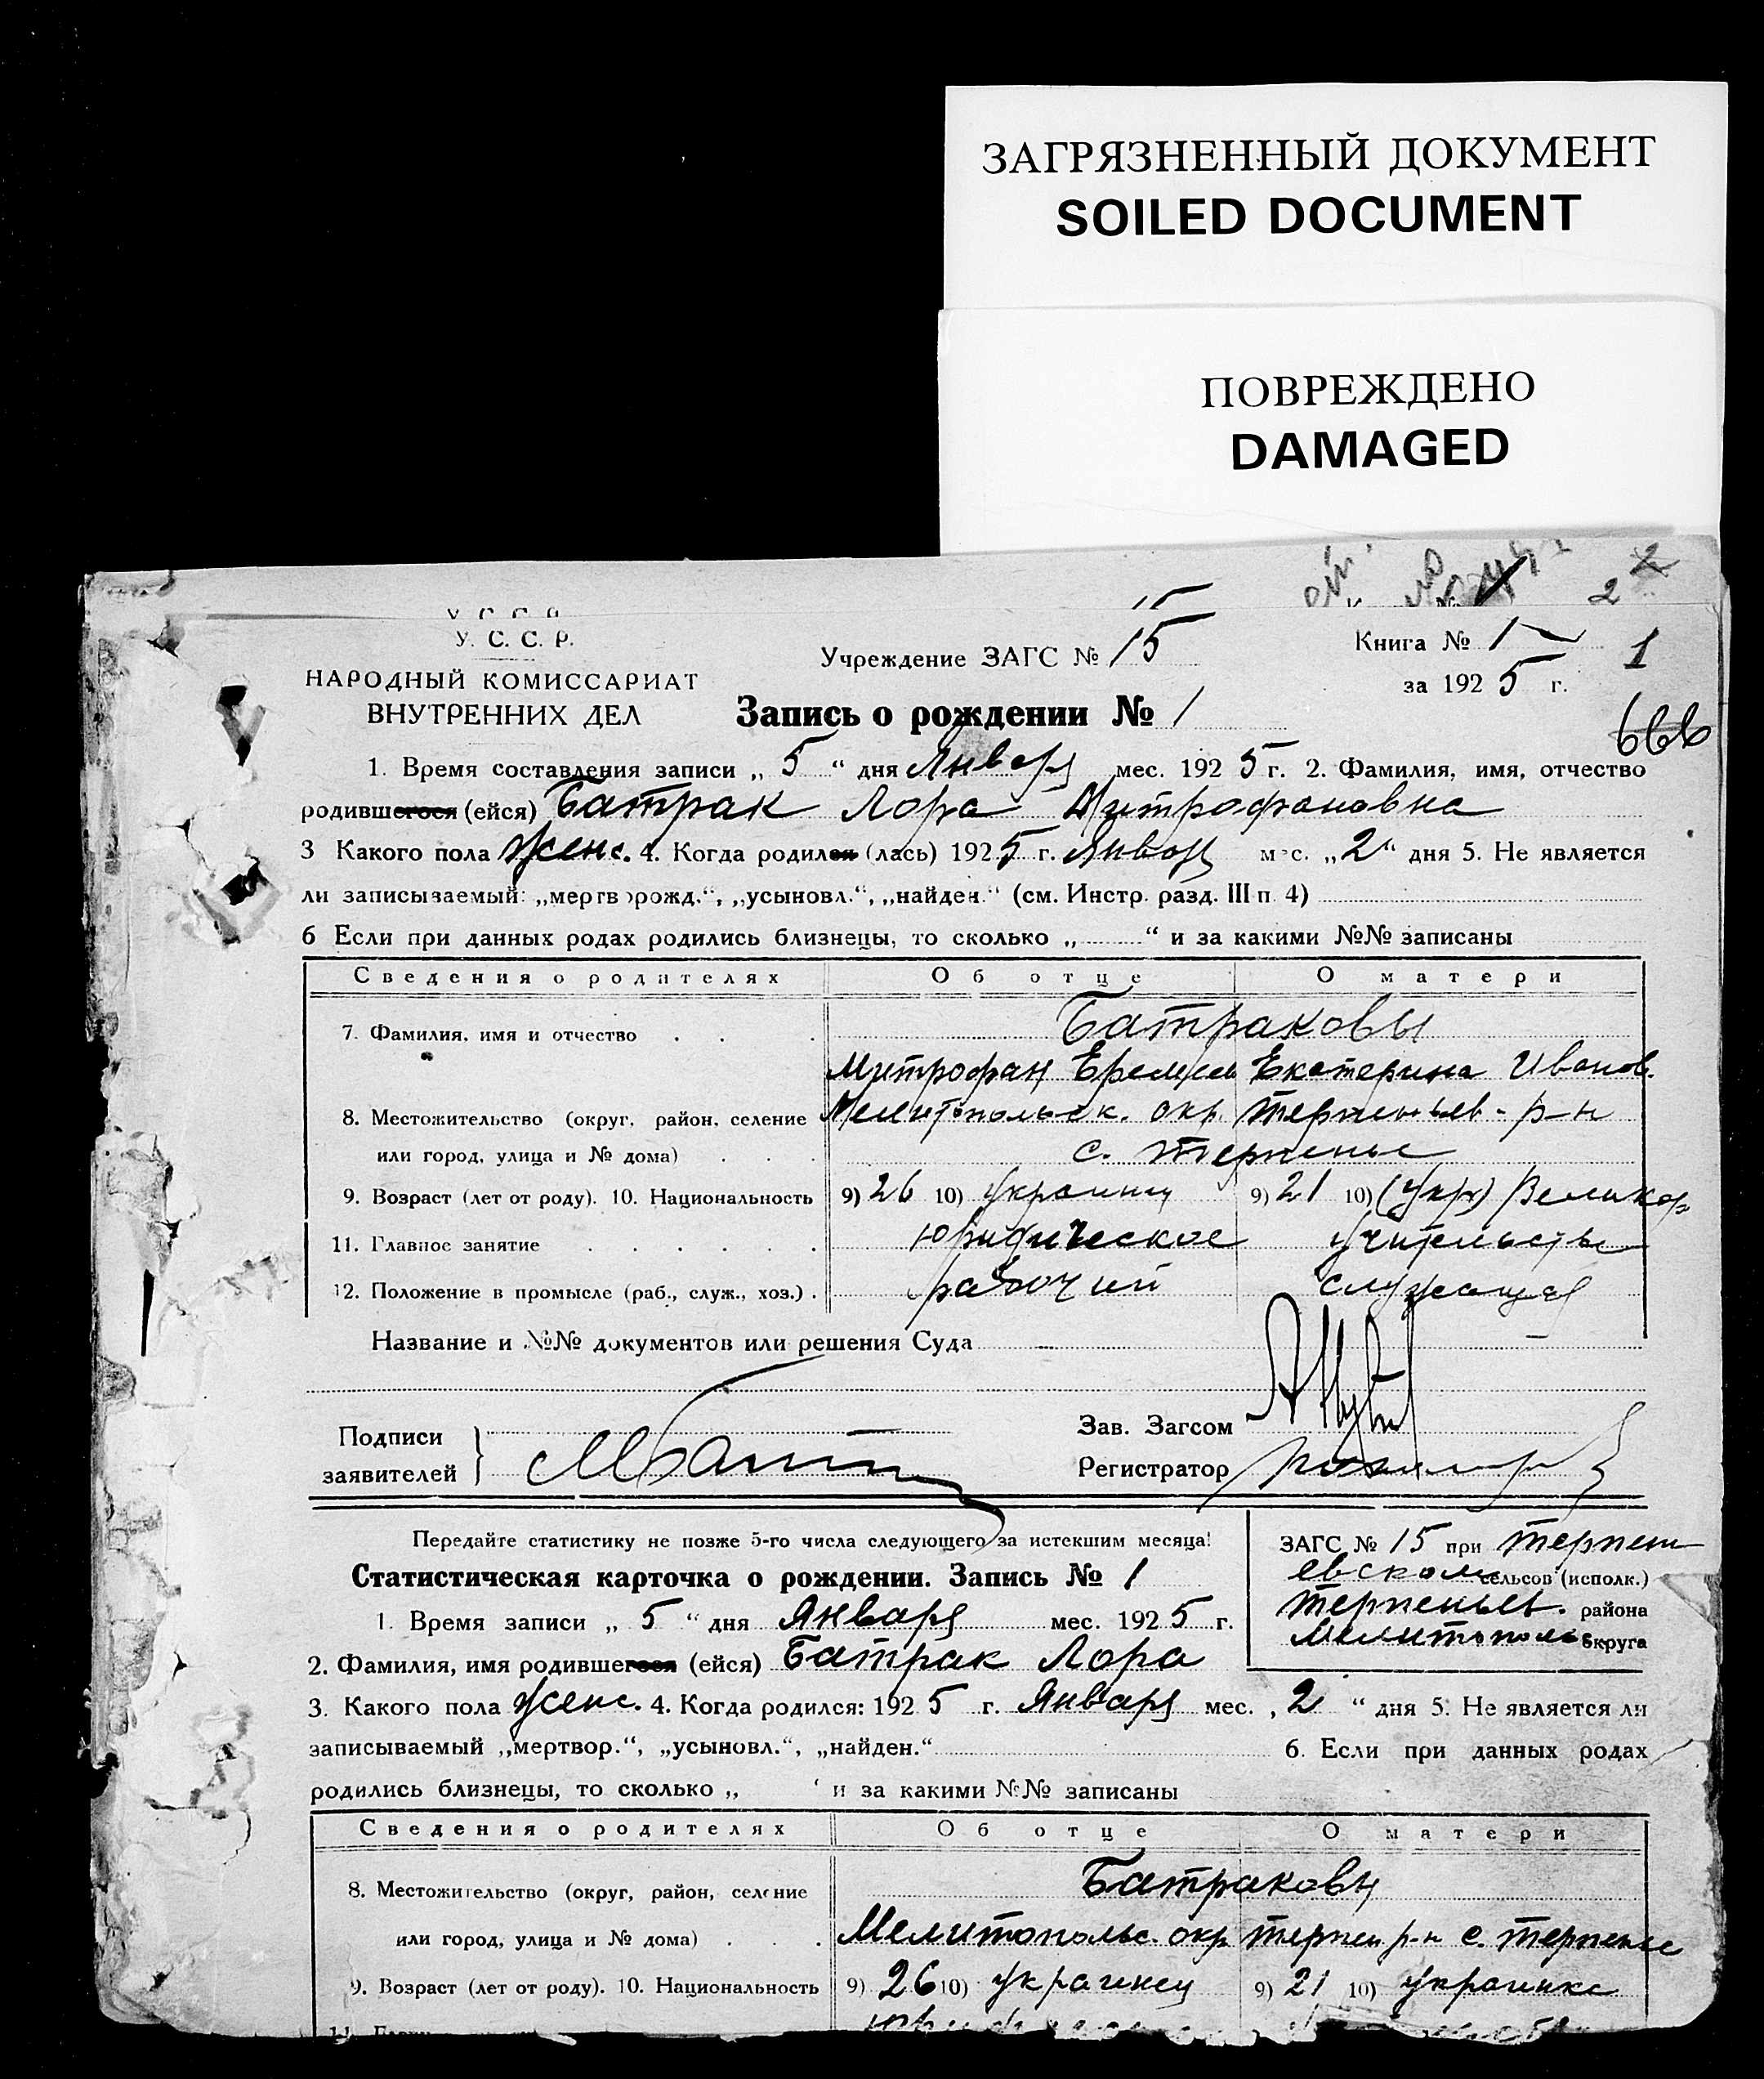 ЗАГРЯЗНЕННЫЙ ДОКУМЕНТ
SOILED DOCUMENT
ПОВРЕЖДЕНО
DAMAGED
2 2
15
У. С. С. Р.
Учреждение ЗАГС № 15
Книга № 1
1
НАРОДНЫЙ КОМИССАРИАТ
за 1925 г.
ВНУТРЕННИХ ДЕЛ
Запись о рождении № 1
666
1. Время составления записи „ 5 “ дня Января мес. 1925 г. 2. Фамилия, имя, отчество
родившегося (ейся) Батрак Лора Митрофановна
3 Какого пола женс. 4. Когда родился (лась) 1925 г. Января мес. „2“ дня 5. Не является
ли записываемый: „мертворожд.“, „усыновл.“, „найден.“ (см. Инстр. разд. III п. 4)
6 Если при данных родах родились близнецы, то сколько „ “ и за какими №№ записаны
Сведения о родителях Об отце О матери
Батраковы
7. Фамилия, имя и отчество
Митрофан Екатерина Иванов.
8. Местожительство (округ, район, селение Мелитопольск. окр. Терпеньев. р-н
или город, улица и № дома) с. Терпенье
9. Возраст (лет от роду). 10. Национальность 9) 26 10) украинец 9) 21 10) (укр) Великор
11. Главное занятие Юридическое учительство
12. Положение в промысле (раб., служ., хоз.) рабочий служащая
Название и №№ документов или решения Суда —
Подписи
заявителей
Зав. Загсом
Регистратор
Передайте статистику не позже 5-го числа следующего за истекшим месяца!
ЗАГС № 15 при Терпень
евском сельсов (исполк.)
Статистическая карточка о рождении. Запись № 1
Терпеньев. района
1. Время записи „ 5 “ дня Января мес. 1925 г.
Мелитополь округа
2. Фамилия, имя родившегося (ейся) Батрак Лора
3. Какого пола женс. 4. Когда родился: 1925 г. Января мес. „ 2 “ дня 5. Не является ли
записываемый „мертвор.“, „усыновл.“, „найден.“ 6. Если при данных родах
родились близнецы, то сколько „ “ и за какими №№ записаны
Сведения о родителях Об отце О матери
Батраковы
8. Местожительство (округ, район, селение
или город, улица и № дома) Мелитопольс. окр Терпен р-н с. Терпенье
9. Возраст (лет от роду). 10. Национальность 9) 26 10) украинец 9) 21 10) украинка